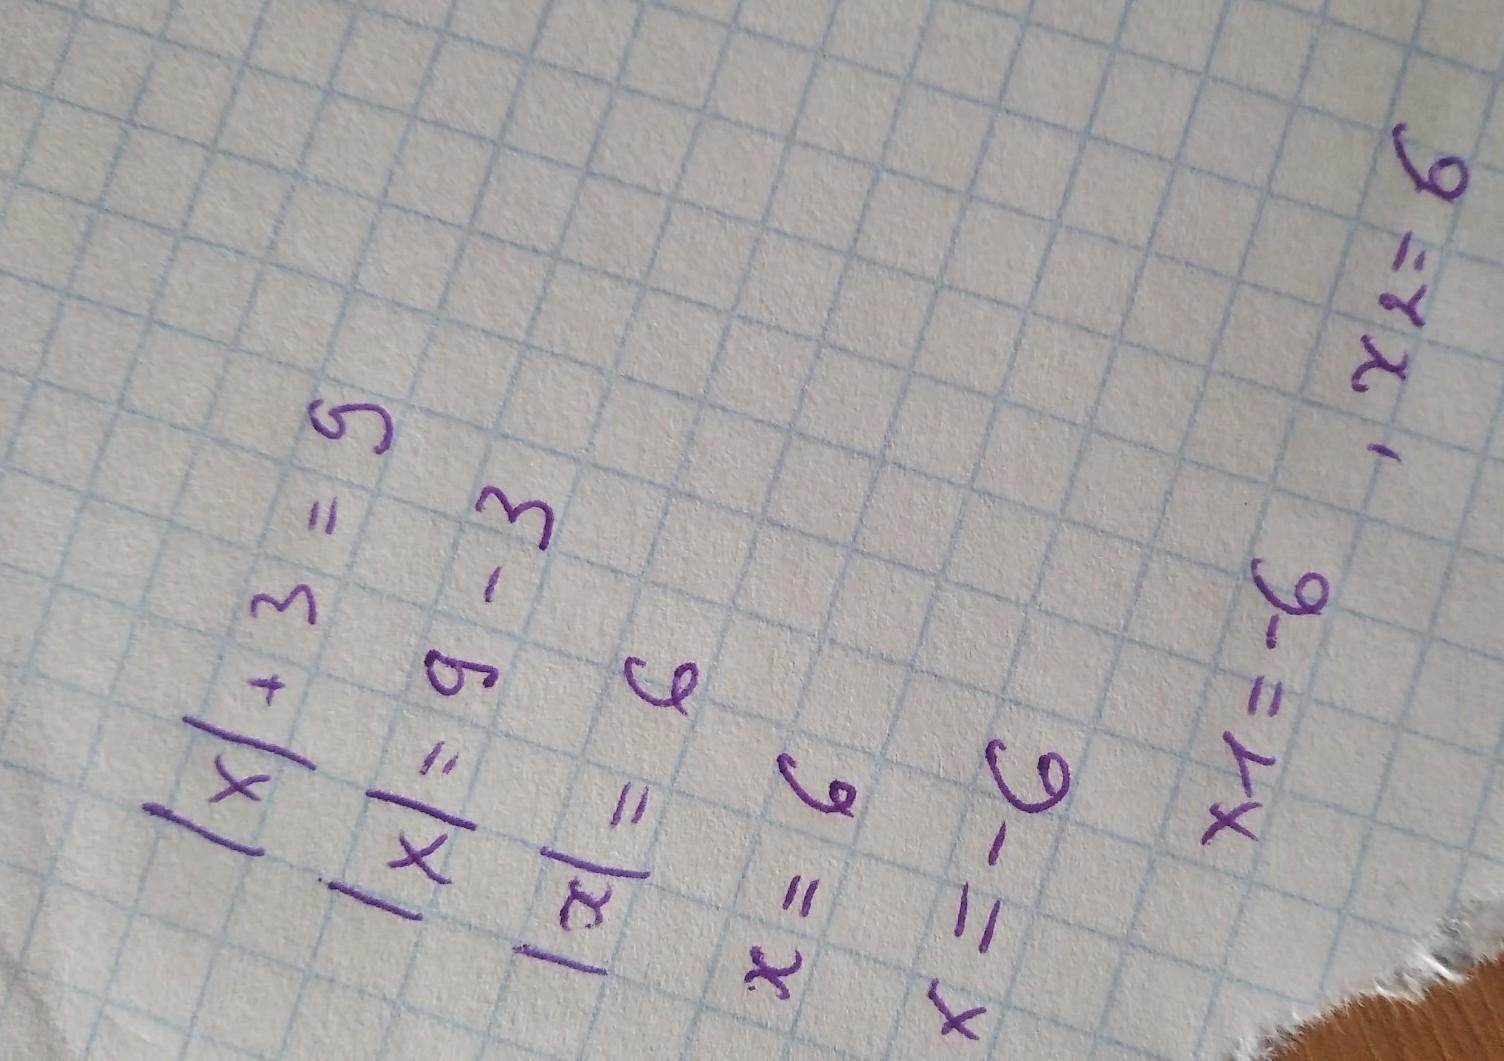 |x| + 3 = 9
|x| = 9 - 3
|x| = 6
x = 6
x = -6
x1 = -6, x2 = 6